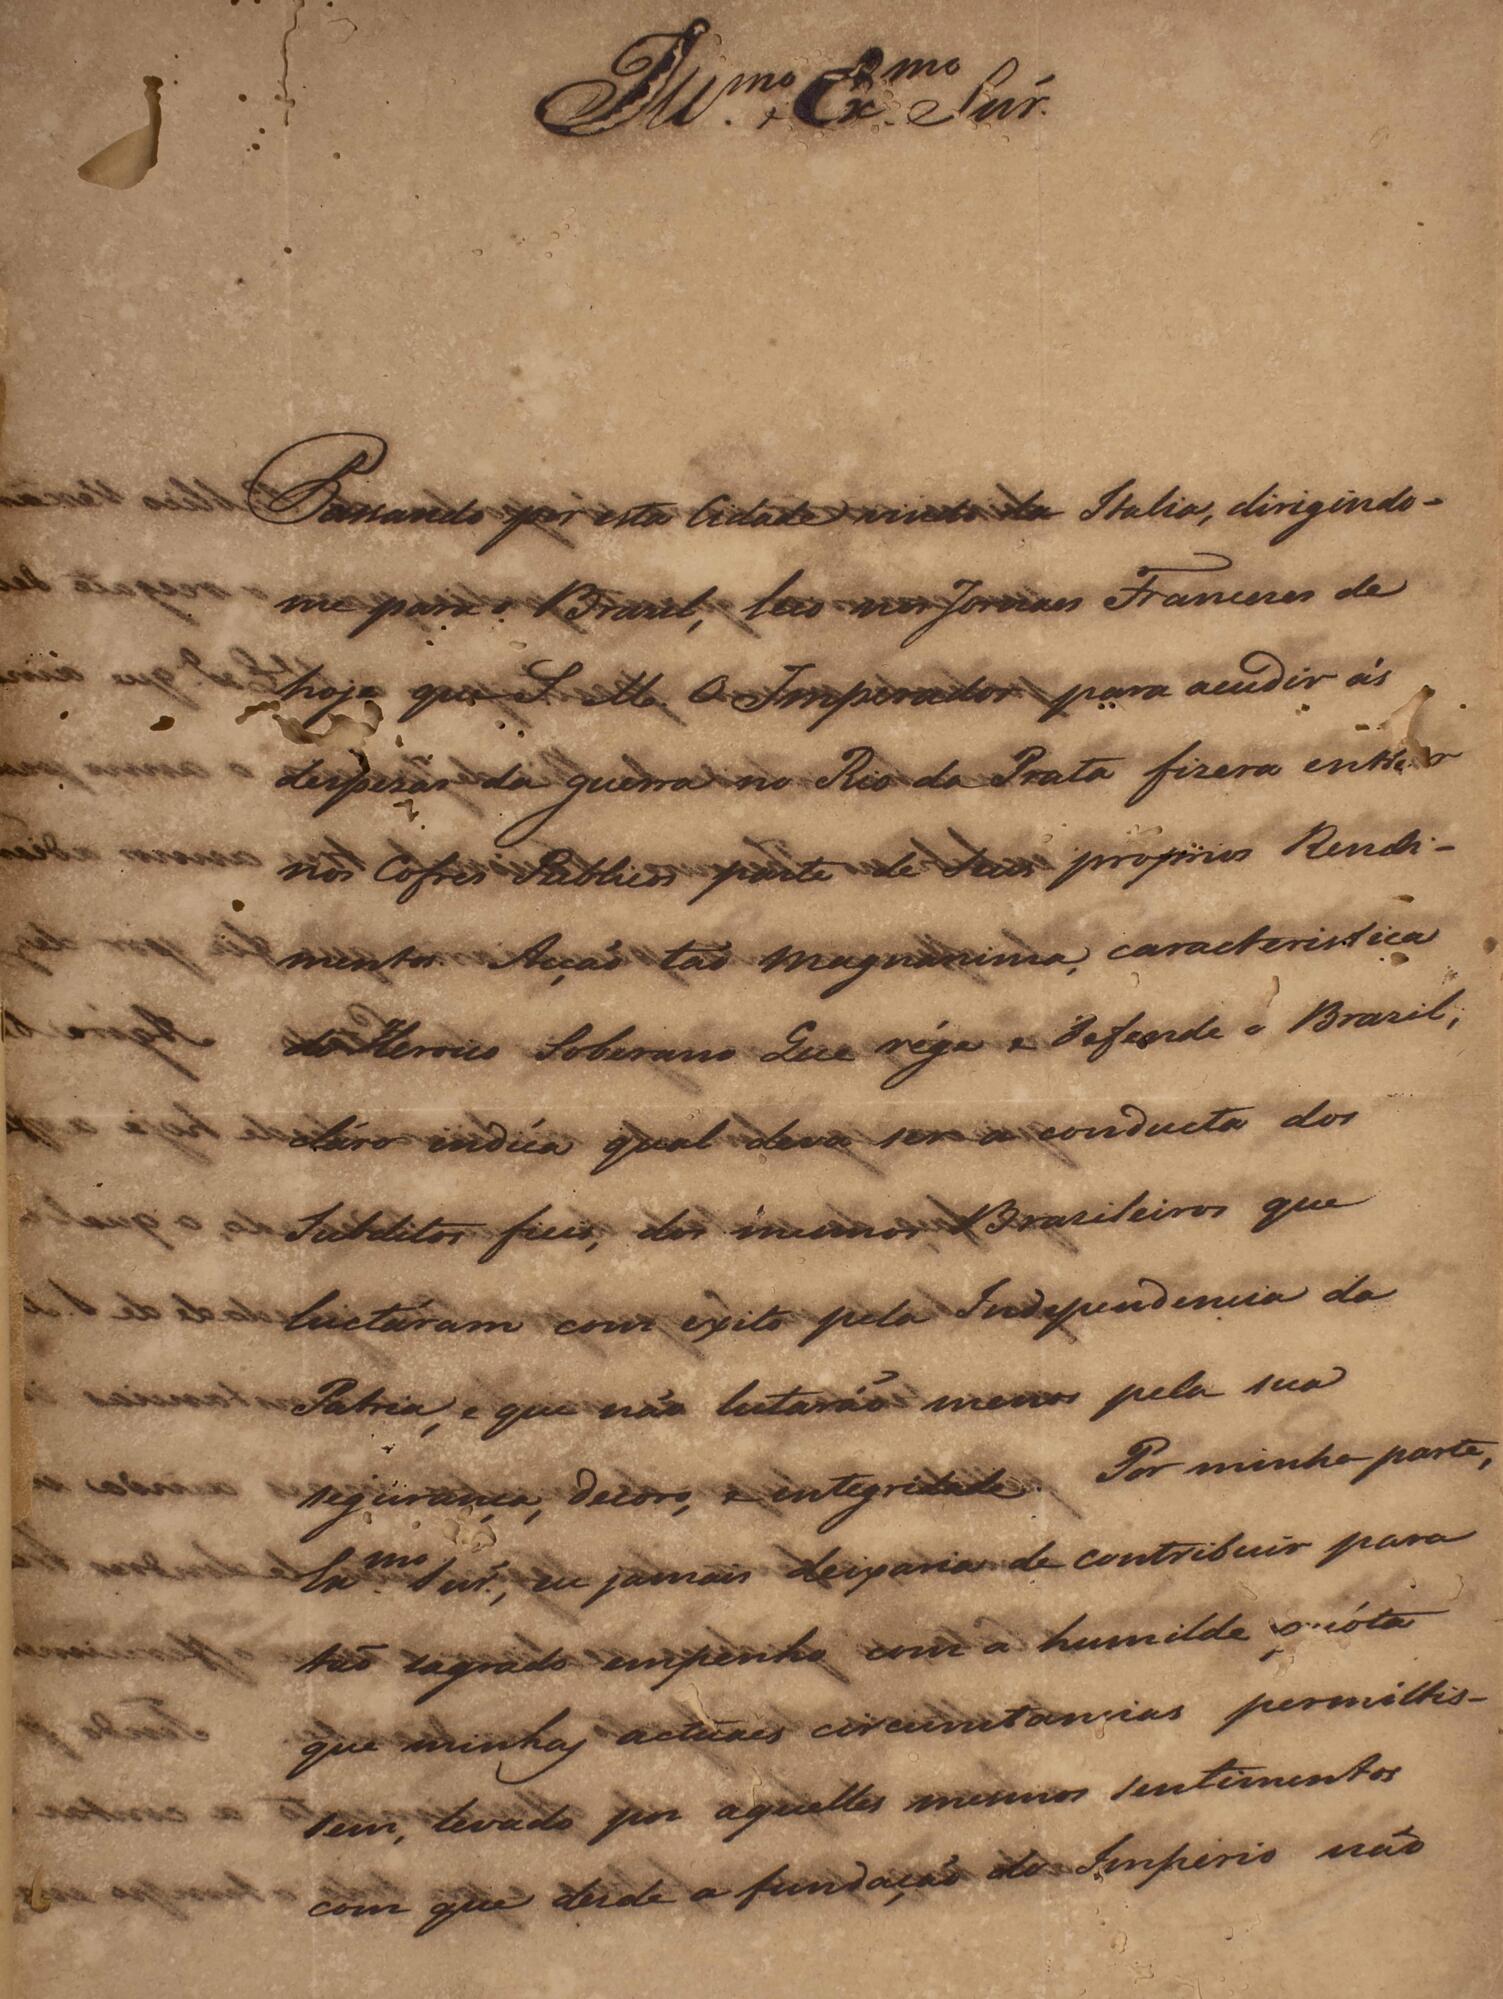 Ill.mo e Ex.mo Snr.
Passando por esta Cidade vindo da Italia, dirigindo-
me para o Brazil, leio nos Jornaes Francezes de
hoje que S. M. O Imperador para acudir ás
despezas da guerra no Rio da Prata fizera entrar
nos Cofres Publicos parte de Seus proprios Rendi-
mentos. Acção tão magnanima, caracteristica
do Heroico Soberano Que rége e defende o Brazil,
cláro indíca qual deva ser a conducta dos
Subditos fieis, dos mesmos Brazileiros que
luctáram com exito pela Independencia da
Patria, e que não lutarão menos pela sua
segurança, decoro, e integridade. Por minha parte,
Ex.mo Snr., eu jamais deixaria de contribuir para
tão sagrado empenho com a humilde quóta
que minhas actuaes circumstancias permittis-
sem, levado por aquelles mesmos sentimentos
com que desde a fundação do Imperio não